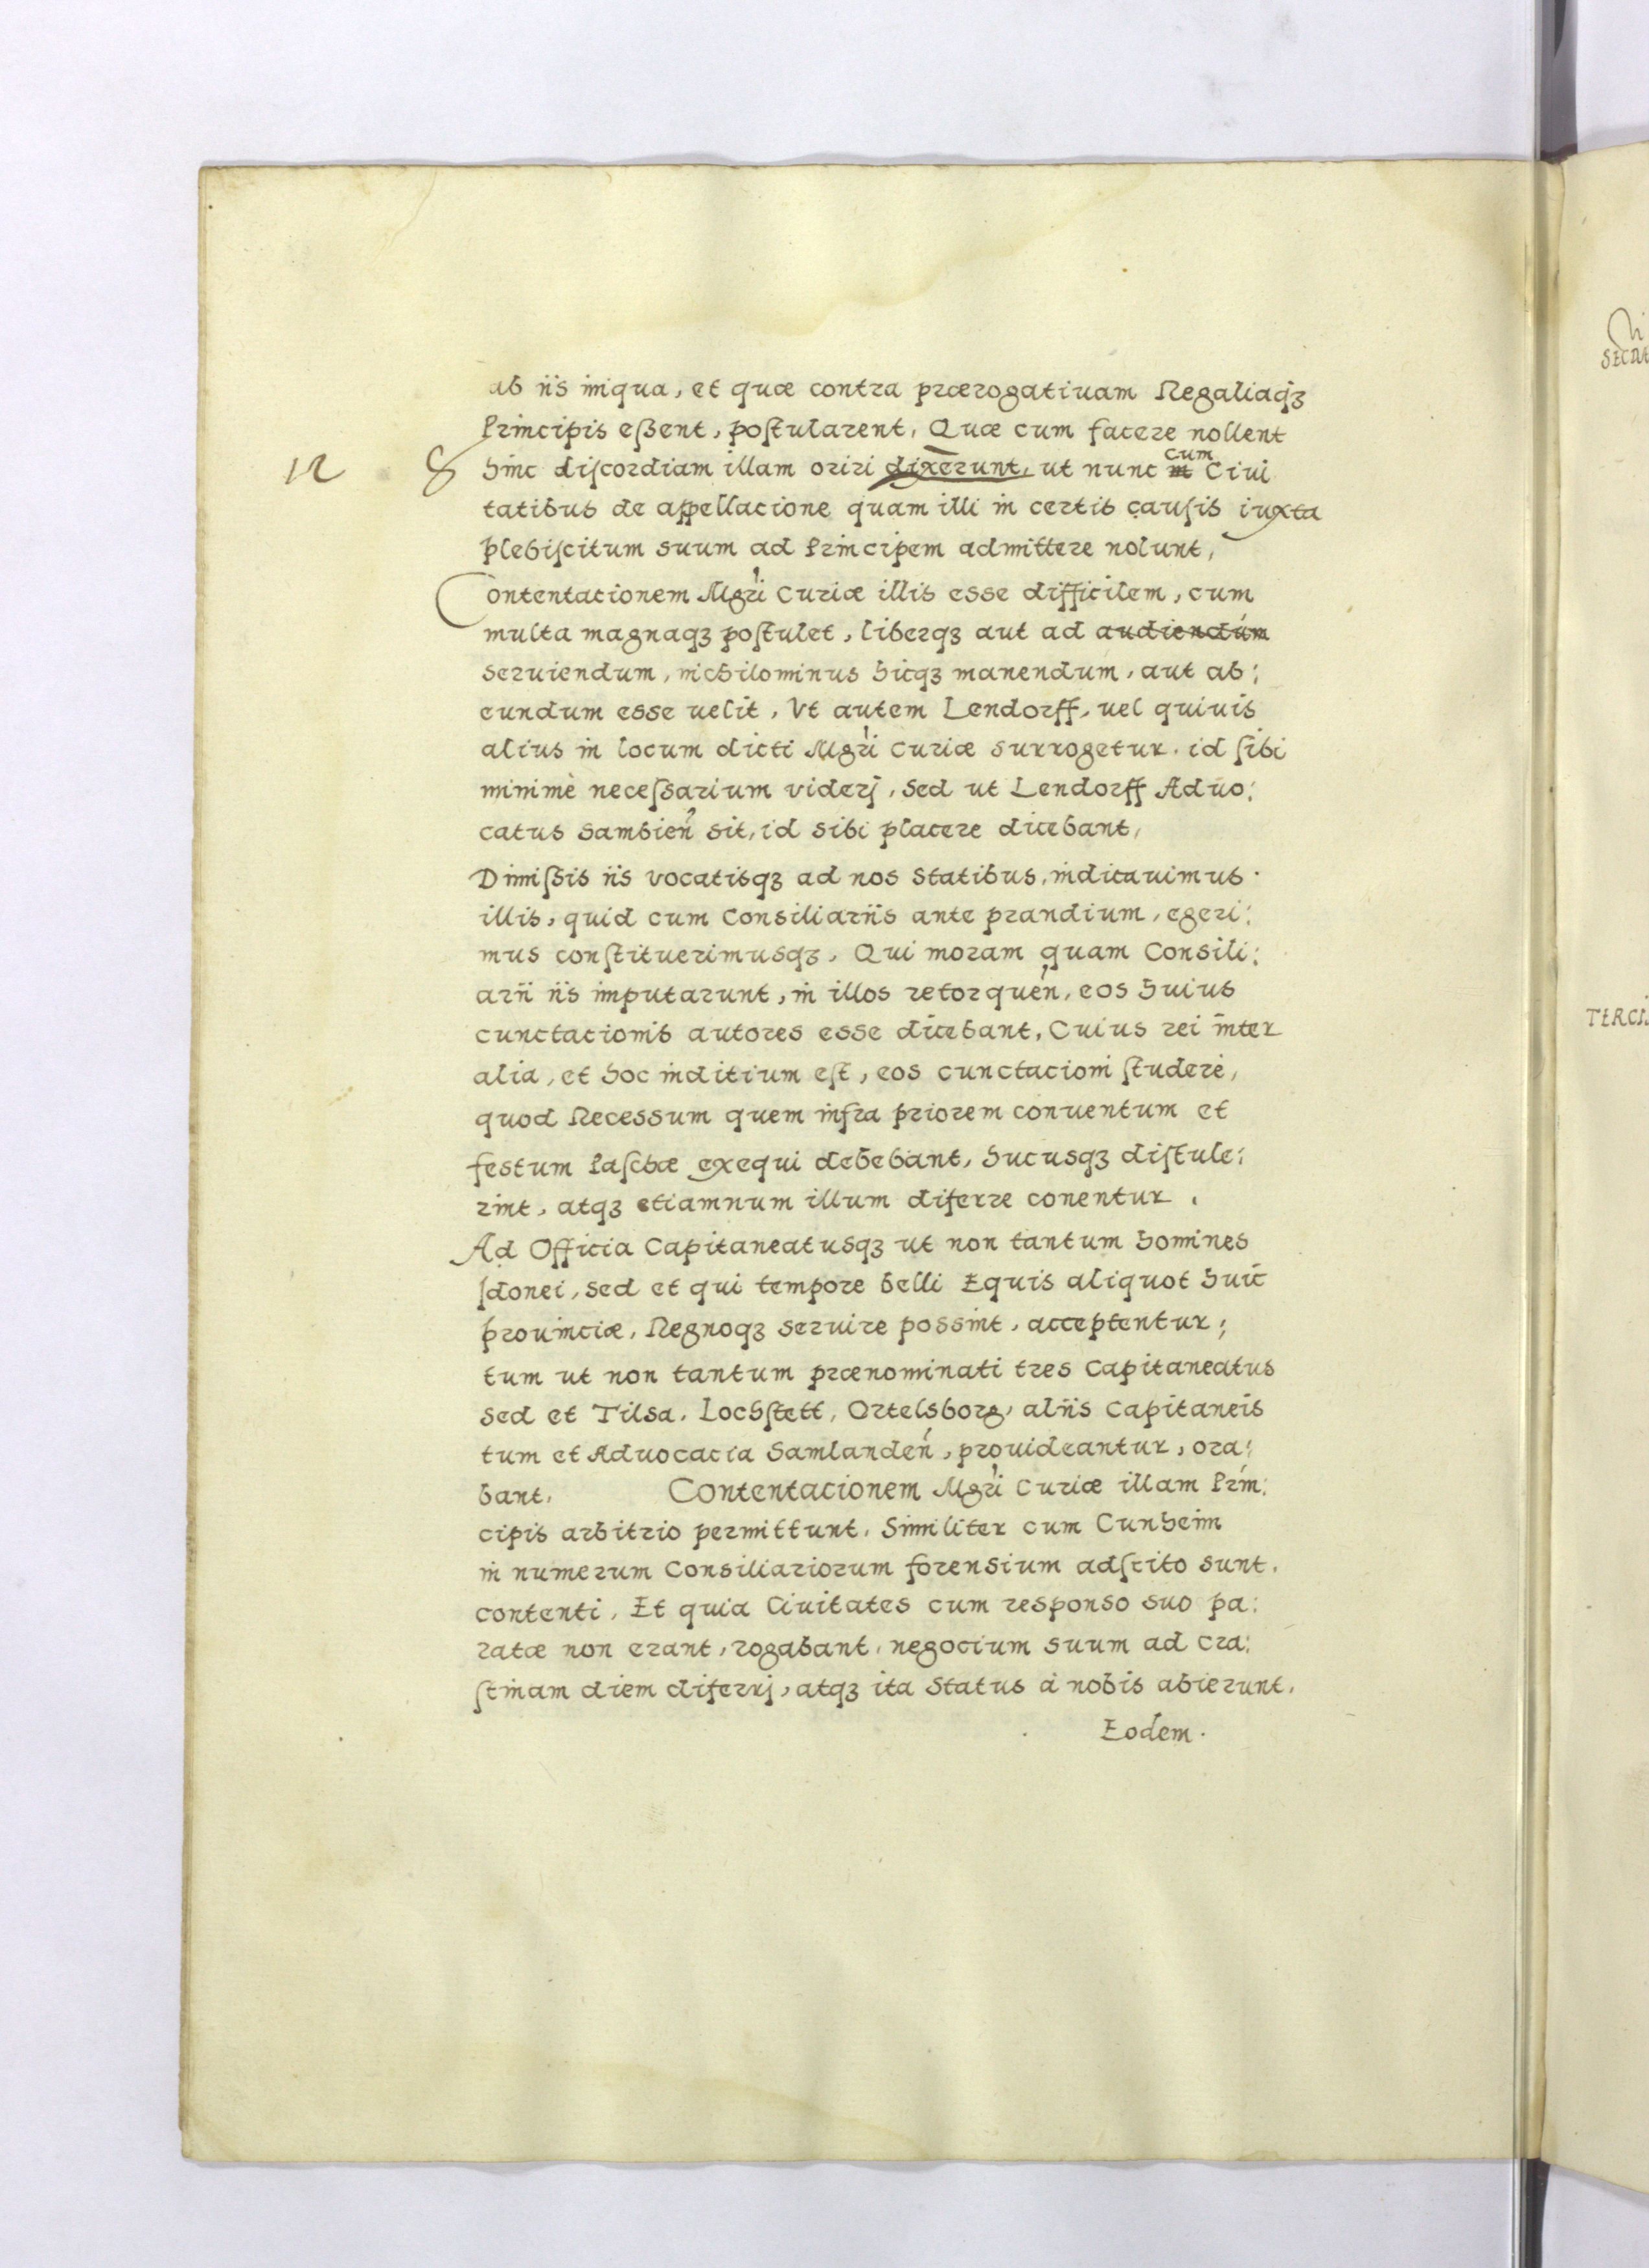 ab iis iniqua, et quæ contra prærogatiuam Regaliaqꝫ
Principis eßent, postularent, Quæ cum facere nollent
12 8 hinc discordiam illam oriri dixerunt, ut nunc in cum Ciui
tatibus de appellacione quam illi in certis causis iuxta
plebiscitum suum ad Principem admittere nolunt,
Contentacionem Mgri Curiæ illis esse difficilem, cum
multa magnaqꝫ postulet, liberqꝫ aut ad audiendúm
seruiendum, nichilominus hicqꝫ manendum, aut ab:
eundum esse uelit, Vt autem Lendorff, uel quiuis
alius in locum dicti Mgri Curiæ surrogetur. id sibi
minimè necessarium viderj, sed ut Lendorff Aduo:
catus Sambien̄ sit, id sibi placere dicebant,
Dimißis iis vocatisqꝫ ad nos Statibus, indicauimus
illis, quid cum Consiliariis ante prandium, egeri:
mus constituerimusqꝫ, Qui moram quam Consili:
arii iis imputarunt, in illos retorquen̄, eos huius
cunctacionis autores esse dicebant, Cuius rei inter
alia, et hoc inditium est, eos cunctacioni studere,
quod Recessum quem infra priorem conuentum et
festum Paschæ exequi debebant, hucusqꝫ distule:
rint, atqꝫ etiamnum illum diferre conentur.
Ad Officia Capitaneatusqꝫ ut non tantum homines
Idonei, sed et qui tempore belli Equis aliquot huic
prouinciæ, Regnoqꝫ seruire possint, acceptentur;
tum ut non tantum prænominati tres Capitaneatus
sed et Tilsa, Lochstett, Ortelsborg, aliis Capitaneis
tum et Aduocacia Samlanden̄, prouideantur, ora:
bant, Contentacionem Mgri Curiæ illam Prin:
cipis arbitrio permittunt, Similiter cum Cunheim
in numerum Consiliariorum forensium adscito sunt.
contenti, Et quia Ciuitates cum responso suo pa:
ratæ non erant, rogabant, negocium suum ad cra:
stinam diem diferrj, atqꝫ ita Status à nobis abierunt.
Eodem.